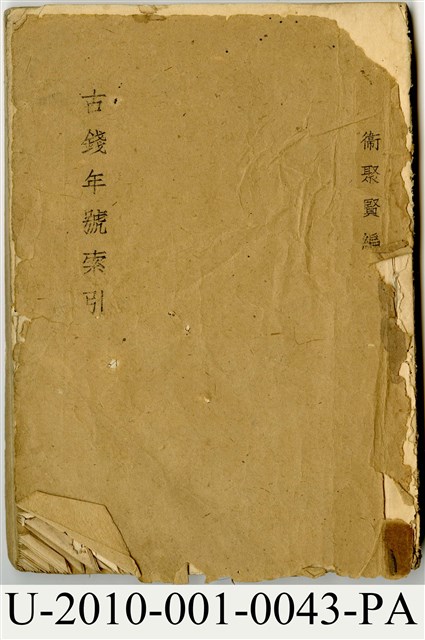 古錢年號索引
衛聚賢編
U-2010-001-0043-PA